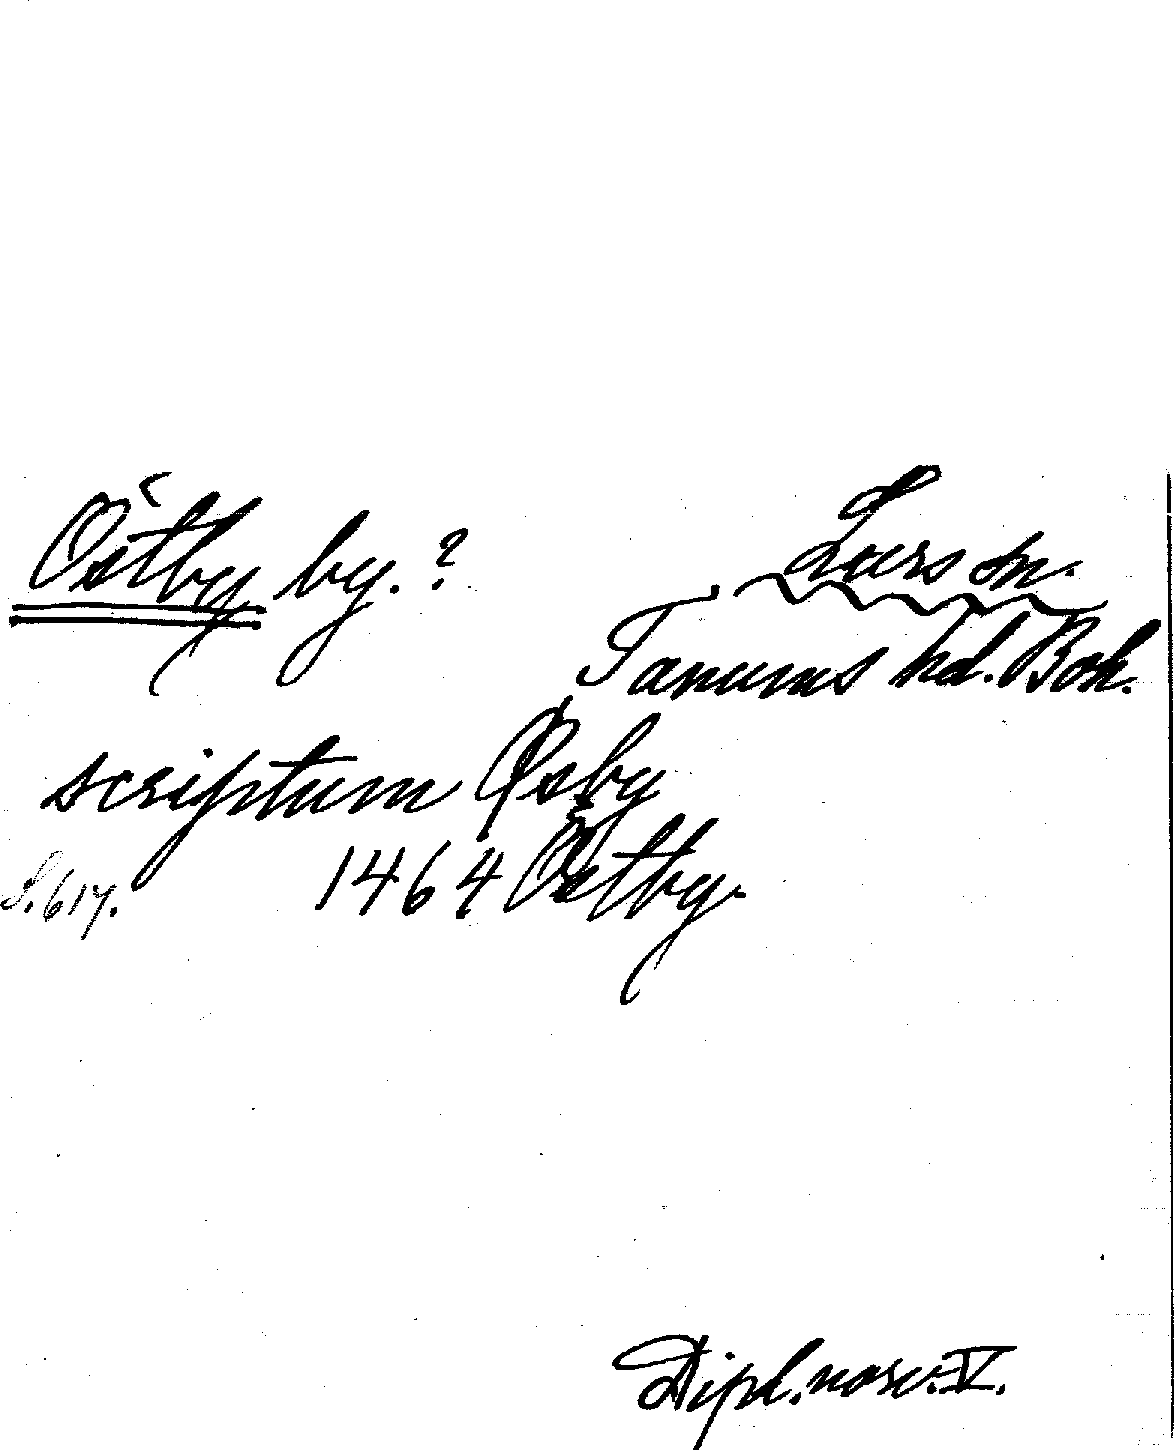 Östby by.?
Lurs sn.
Tanums hd. Boh.
scriptum Øsby
S. 617.
1464 Östby.
Dipl. norv. V.